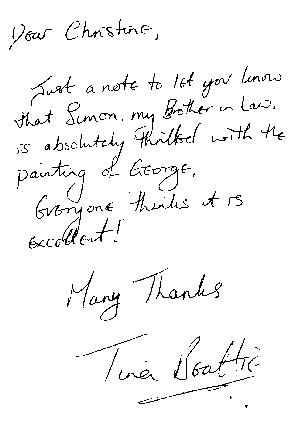 Dear Christine,
Just a note to let you know
that Simon, my Brother in Law,
is absolutely thrilled with the
painting of George.
Everyone thinks it is
excellent!
Many Thanks
Tina Beattie